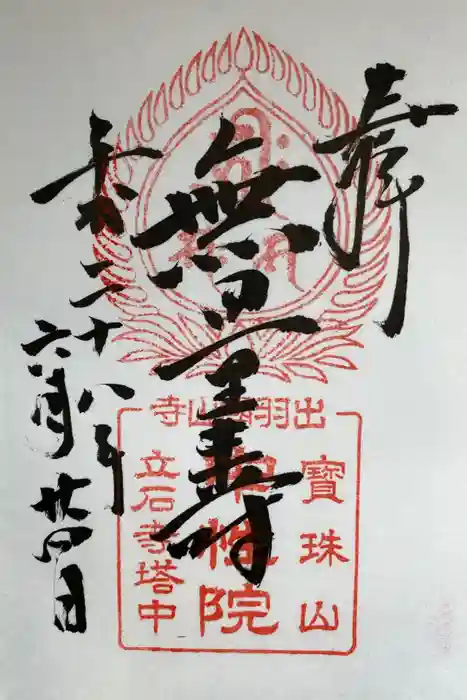 奉拝
無量壽
平成二十八年
六月廿四日
出羽國山寺
寶珠山
中性院
立石寺塔中